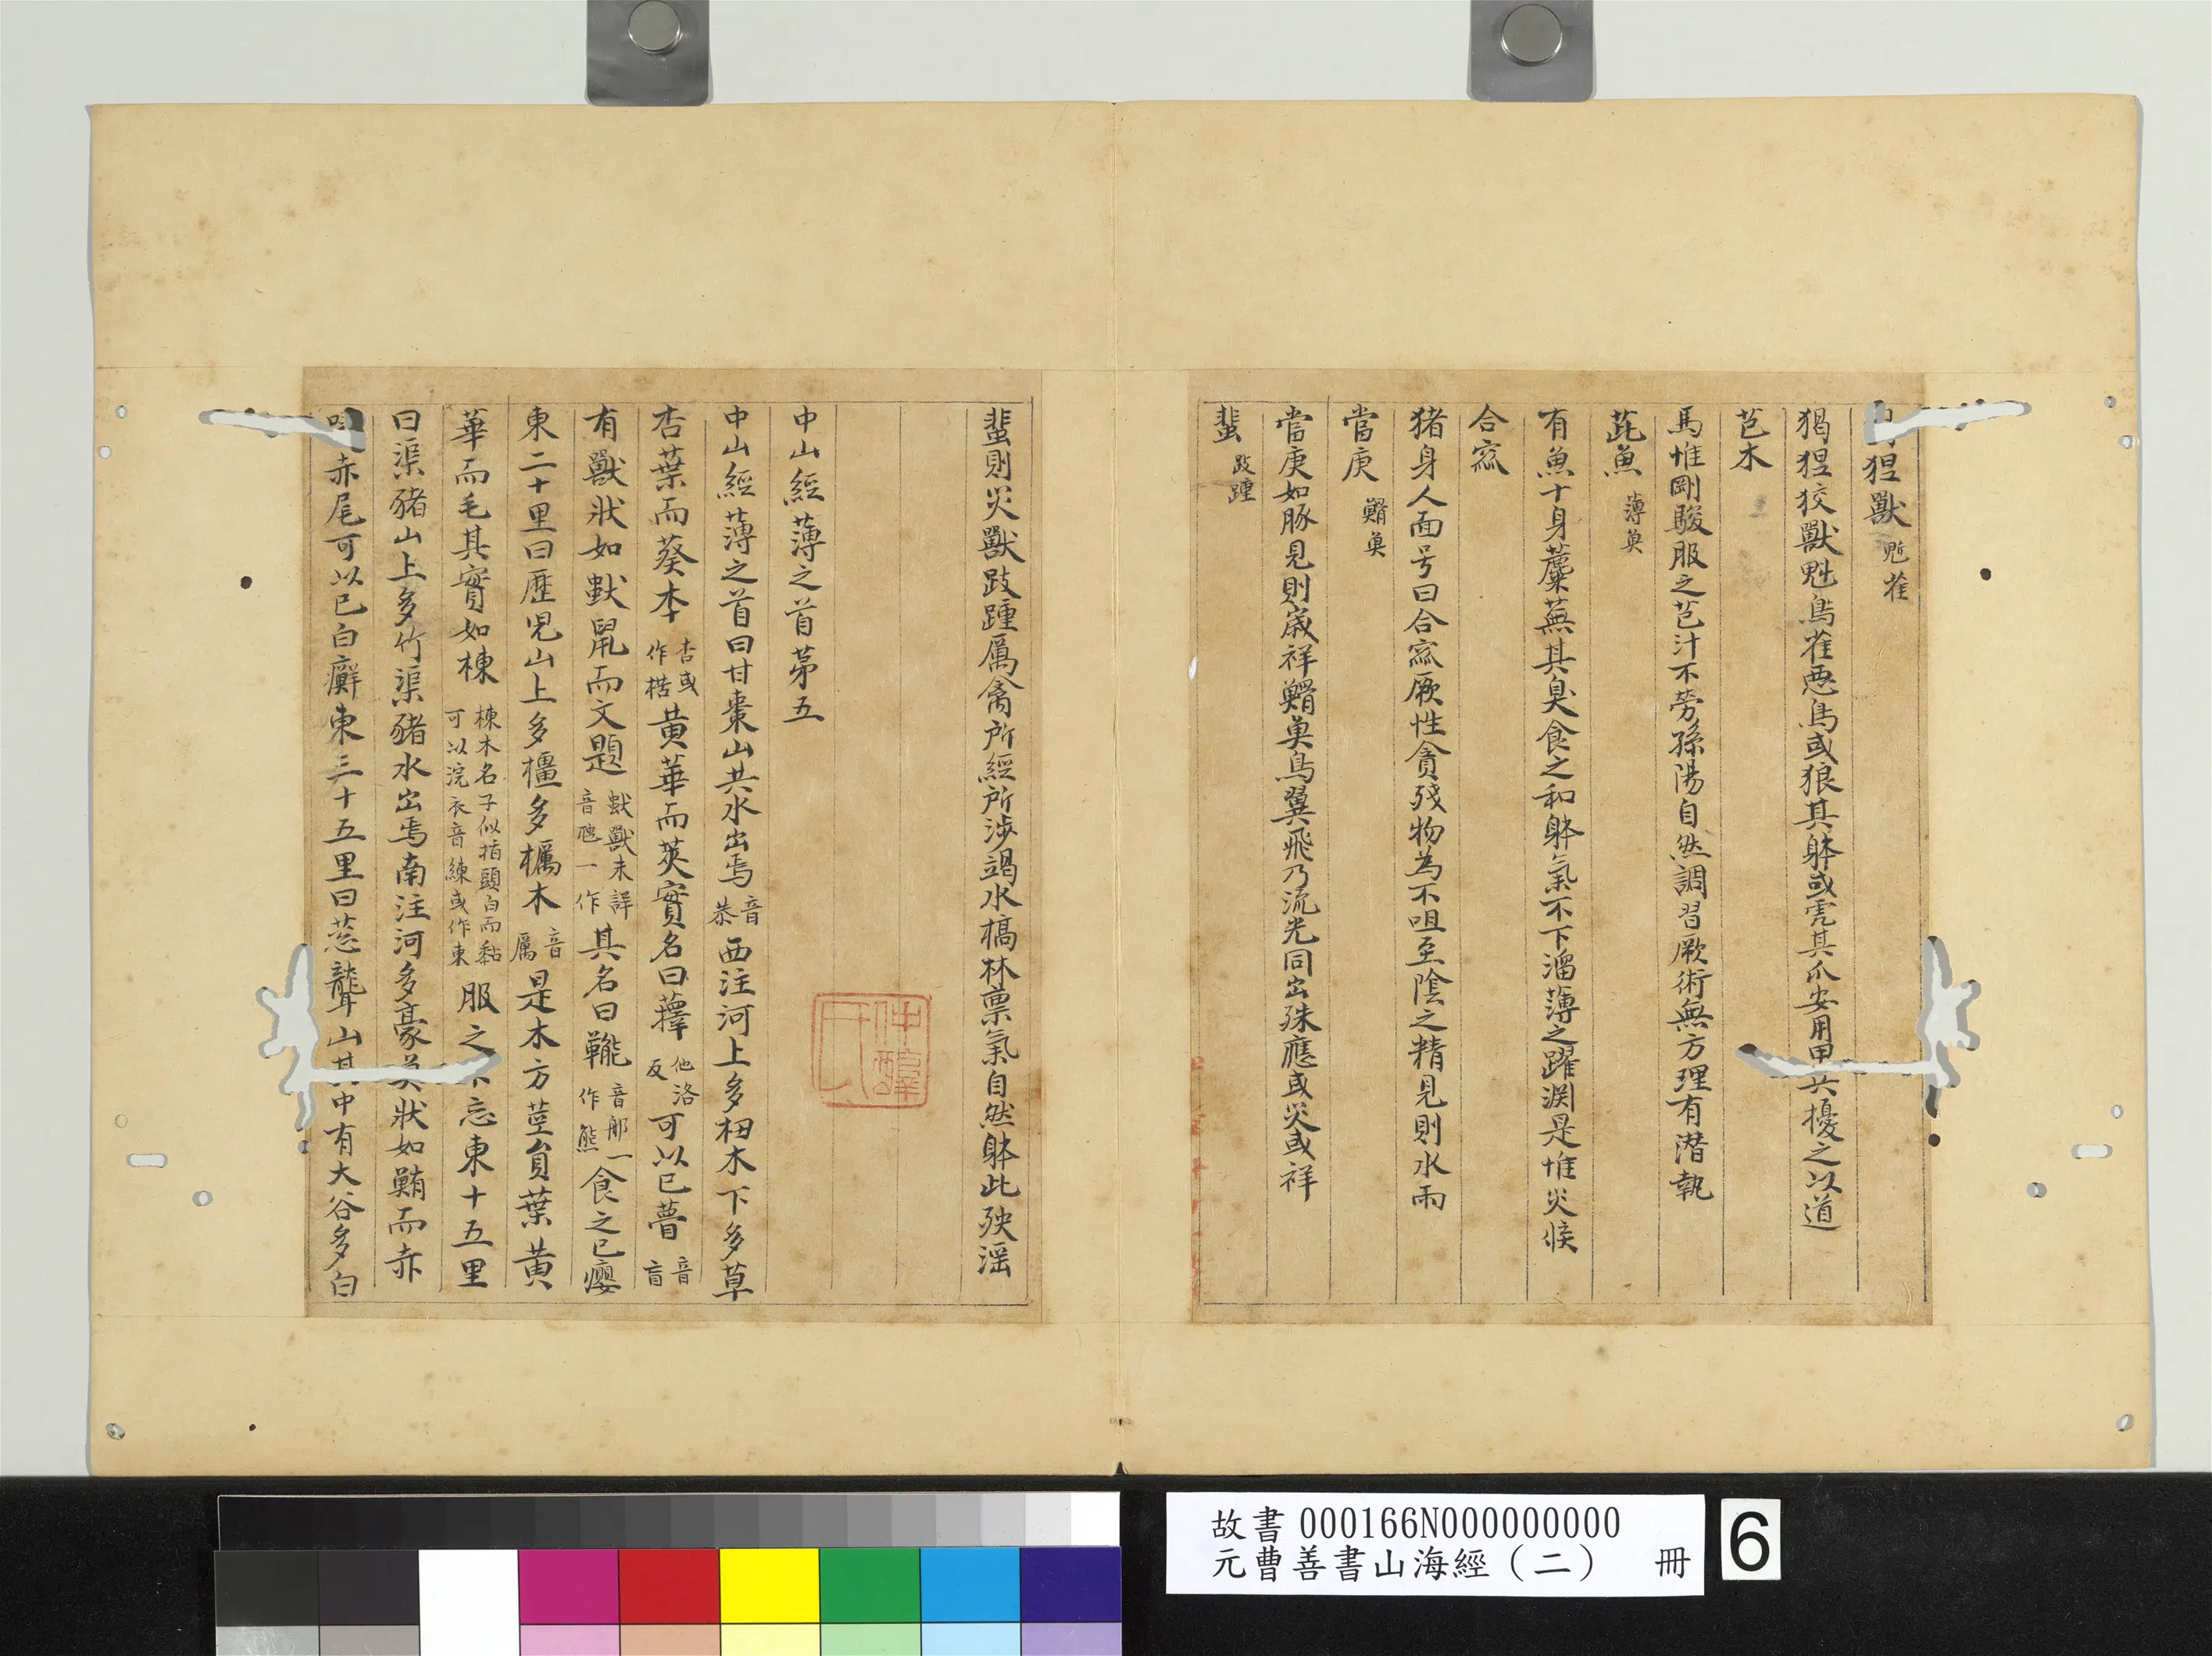 猲狙獸 鬿雀
猲狙狡獸鬿鳥雀惡鳥或狼其躰或虎其爪安用甲兵擾之以道
芑木
馬惟剛駿服之芑汁不勞孫陽自然調習厥術無方理有潜執
茈魚 薄魚
有魚十身蘪蕪其臭食之和躰氣不下溜薄之躍淵是惟災候
合窳
猪身人面号曰合窳厥性貪殘物為不咀至陰之精見則水雨
當庚 䱻魚
當庚如豚見則歲祥䱻魚鳥翼飛乃流光同出殊應或災或祥
蜚 跂踵
蜚則災獸跂踵厲禽所經所涉竭水槁林禀氣自然躰此殃淫
中山經薄之首苐五
中山經薄之首曰甘棗山共水出焉 音恭 西注河上多杻木下多草
杏葉而葵本 杏或作楛 黄華而莢實名曰蘀 他洛反 可以已瞢 音盲
有獸狀如䶈鼠而文題 䶈獸未詳音虺一作 其名曰㔮 音那一作熊 食之已癭
東二十里曰歷兒山上多橿多櫔木 音厲 是木方莖員葉黄
華而毛其實如楝 楝木名子似指頭白而黏可以浣衣音練或作東 服之不忘東十五里
曰渠豬山上多竹渠豬水出焉南注河多豪魚狀如鮪而赤
喙赤尾可以已白癬東三十五里曰葱聾山其中有大谷多白
故書000166N000000000
元曹善書山海經（二） 冊
6